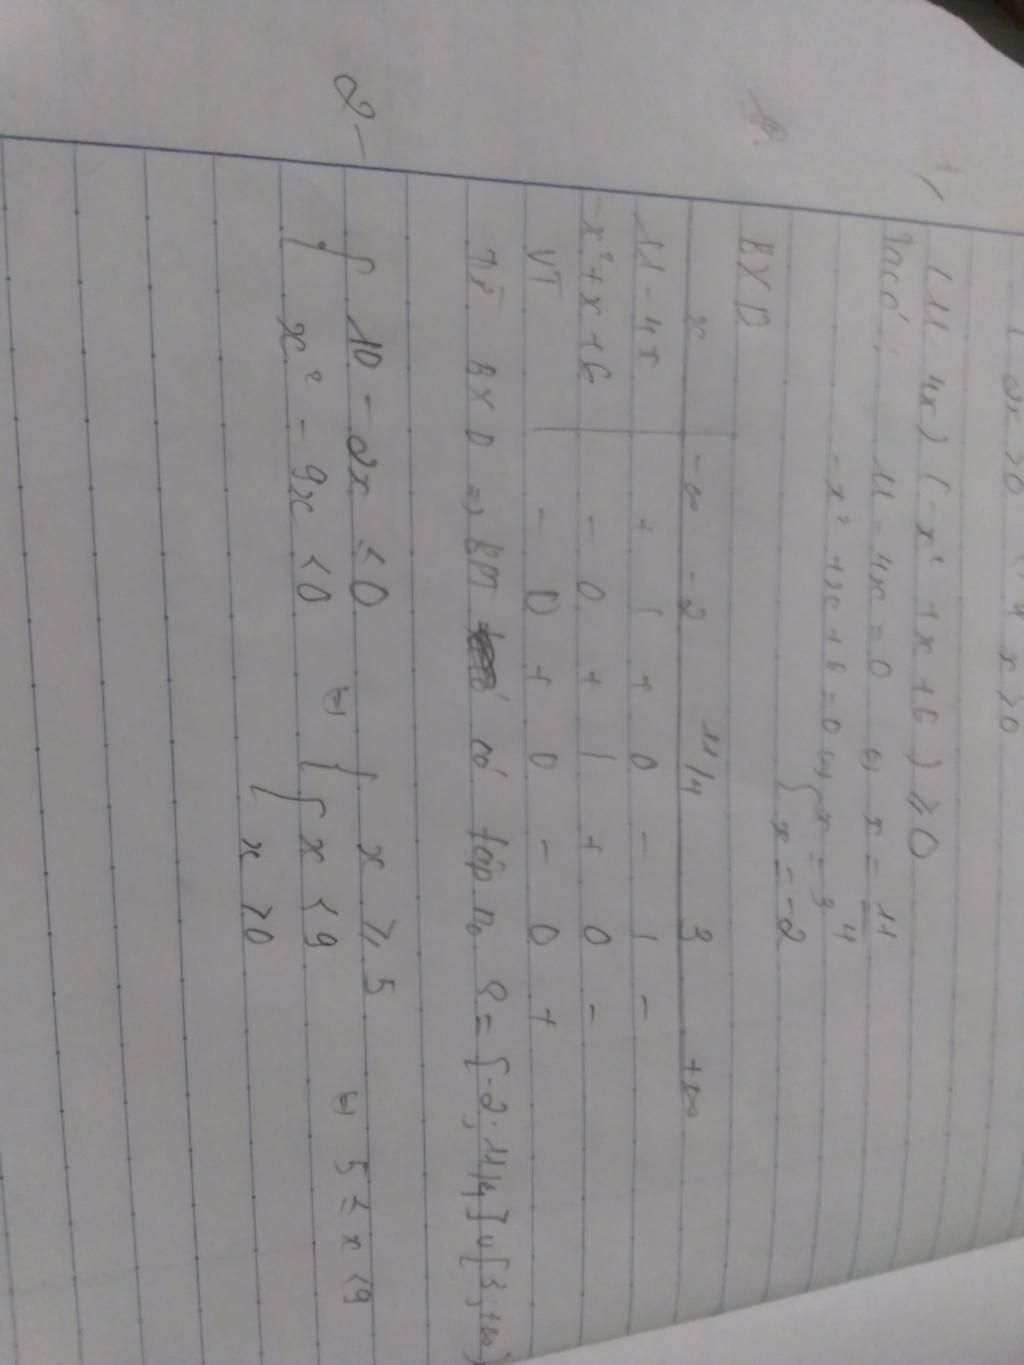 2x > 0
x > 0
1, (11 - 4x)(-x² + x + 6) ≥ 0
Ta có : 11 - 4x = 0 ⇔ x = 11/4
-x² + x + 6 = 0 ⇔ { x = 3
x = -2
BXD
x -∞ -2 11/4 3 +∞
11 - 4x + | + 0 - | -
-x² + x + 6 - 0 + | + 0 -
VT - 0 + 0 - 0 +
Từ BXD => BPT có tập no S = [-2; 11/4] ∪ [3; +∞)
2 - { 10 - 2x ≤ 0 ⇔ { x ≥ 5 ⇔ 5 ≤ x < 9
x² - 9x < 0 { x < 9
x > 0